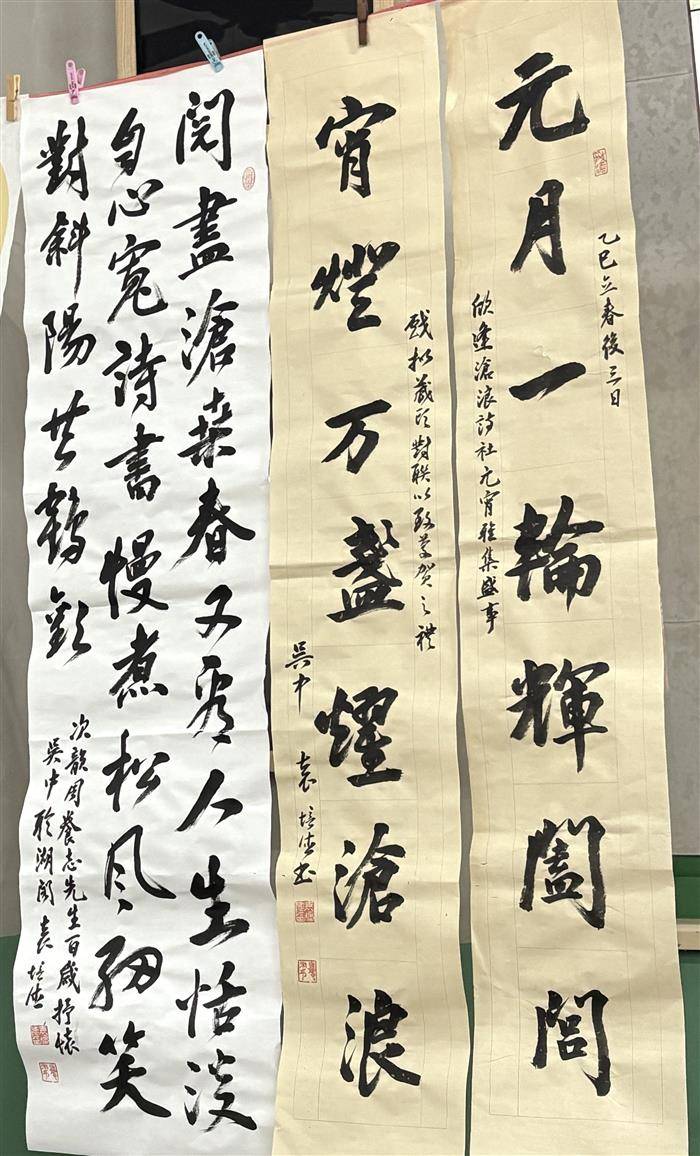 元月一輪輝闔閭
乙巳立春後三日
欣逢滄浪詩社元宵雅集盛事
宵燈万盞耀滄浪
戲拟藏頭對联以致恭贺之禮
吳中 袁培德书
閱盡滄桑春又看人生恬淡
自心寬詩書慢煮松风細笑
對斜陽共鶴歡
次韻周養志先生百歲抒懷
吳中於湖閣袁培德